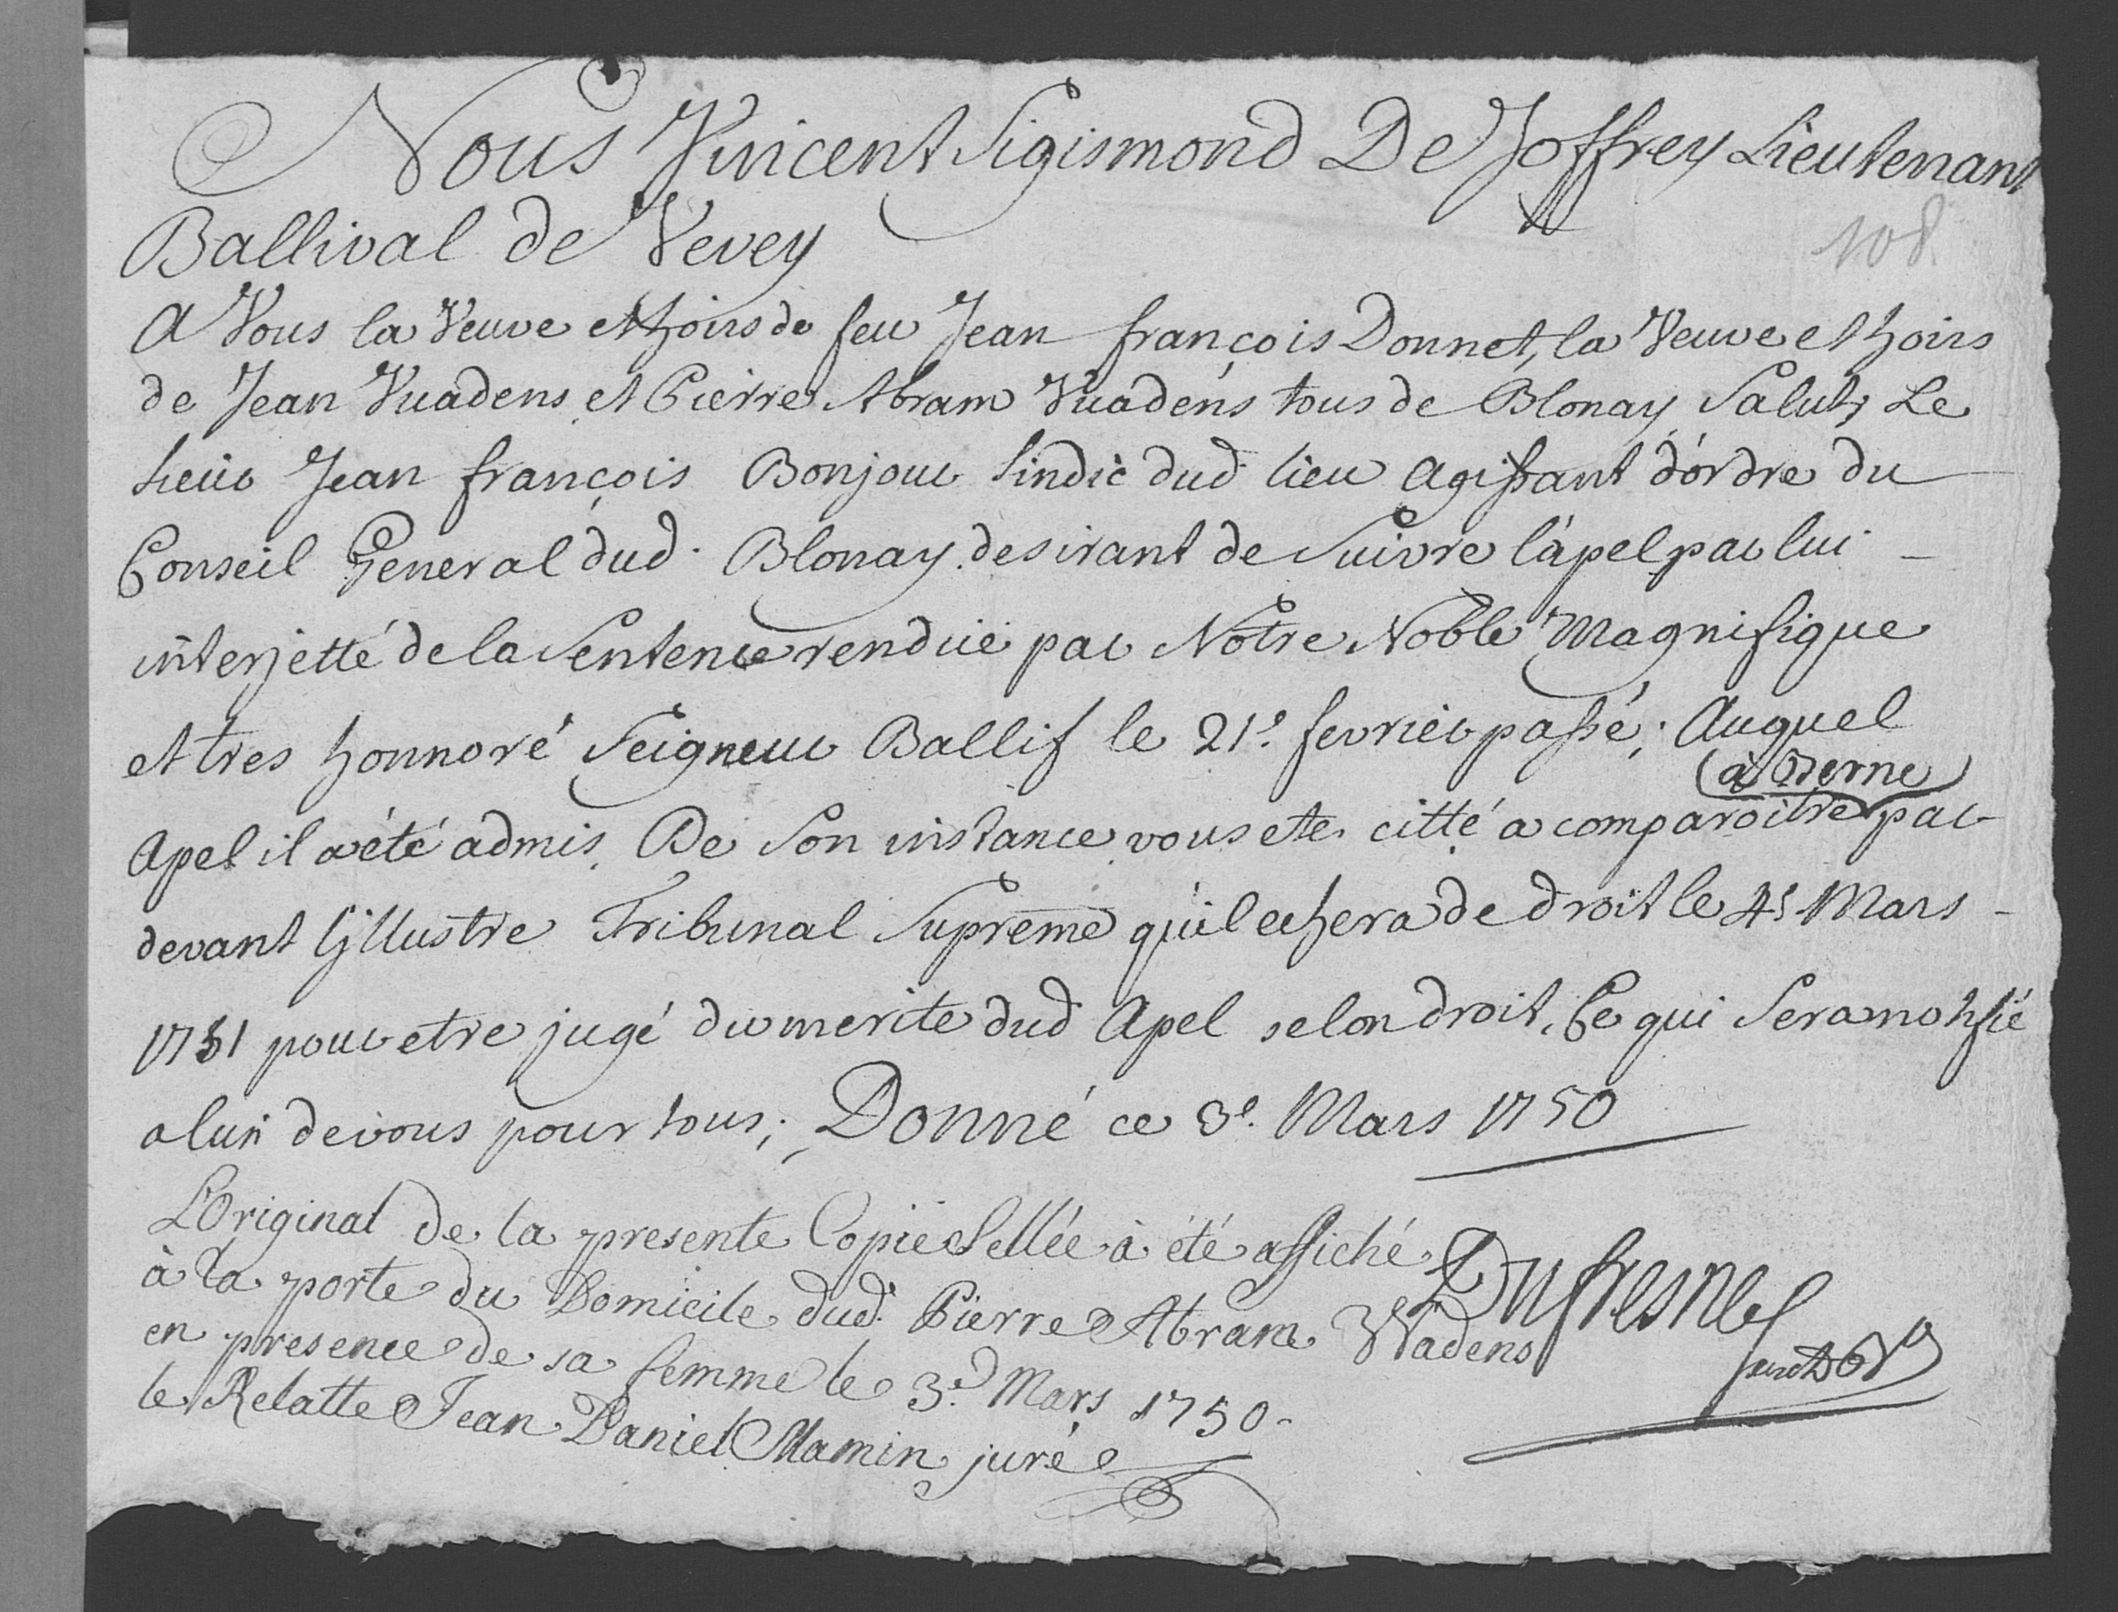 Nous Vincent Sigismond De Joffrey Lieutenant
108
Ballival de Vevey
A Vous la Veuve et hoirs de feu Jean françois Donnet, la Veuve et hoirs
de Jean Vuadens et Pierre Abram Vuadens tous de Blonay Salut, Le
Sieur Jean françois Bonjour Sindic dud lieu Agissant d'ordre du
Conseil General dud. Blonay desirant de Suivre l'apel par lui
interjetté de la Sentence rendue par Notre Noble Magnifique
et tres honnoré Seigneur Ballif le 21e. fevrier passé; Auquel
(a Berne)
Apel il a été admis. De Son instance vous ete citté a comparoitre par
devant l'Illustre Tribunal Supreme qu'il echera de droit le 4e Mars
1751 pour etre jugé du merite dud Apel selon droit, Ce qui Sera notifié
a lun de vous pour tous; Donné ce 3e. Mars 1750
L'Original de la presente Copie Sellée à été affiché
à la porte du Domicile dud. Pierre Abram Wadens
en presence de sa femme le 3e. Mars 1750.
le Relatte Jean Daniel Mamin juré
Dufresne